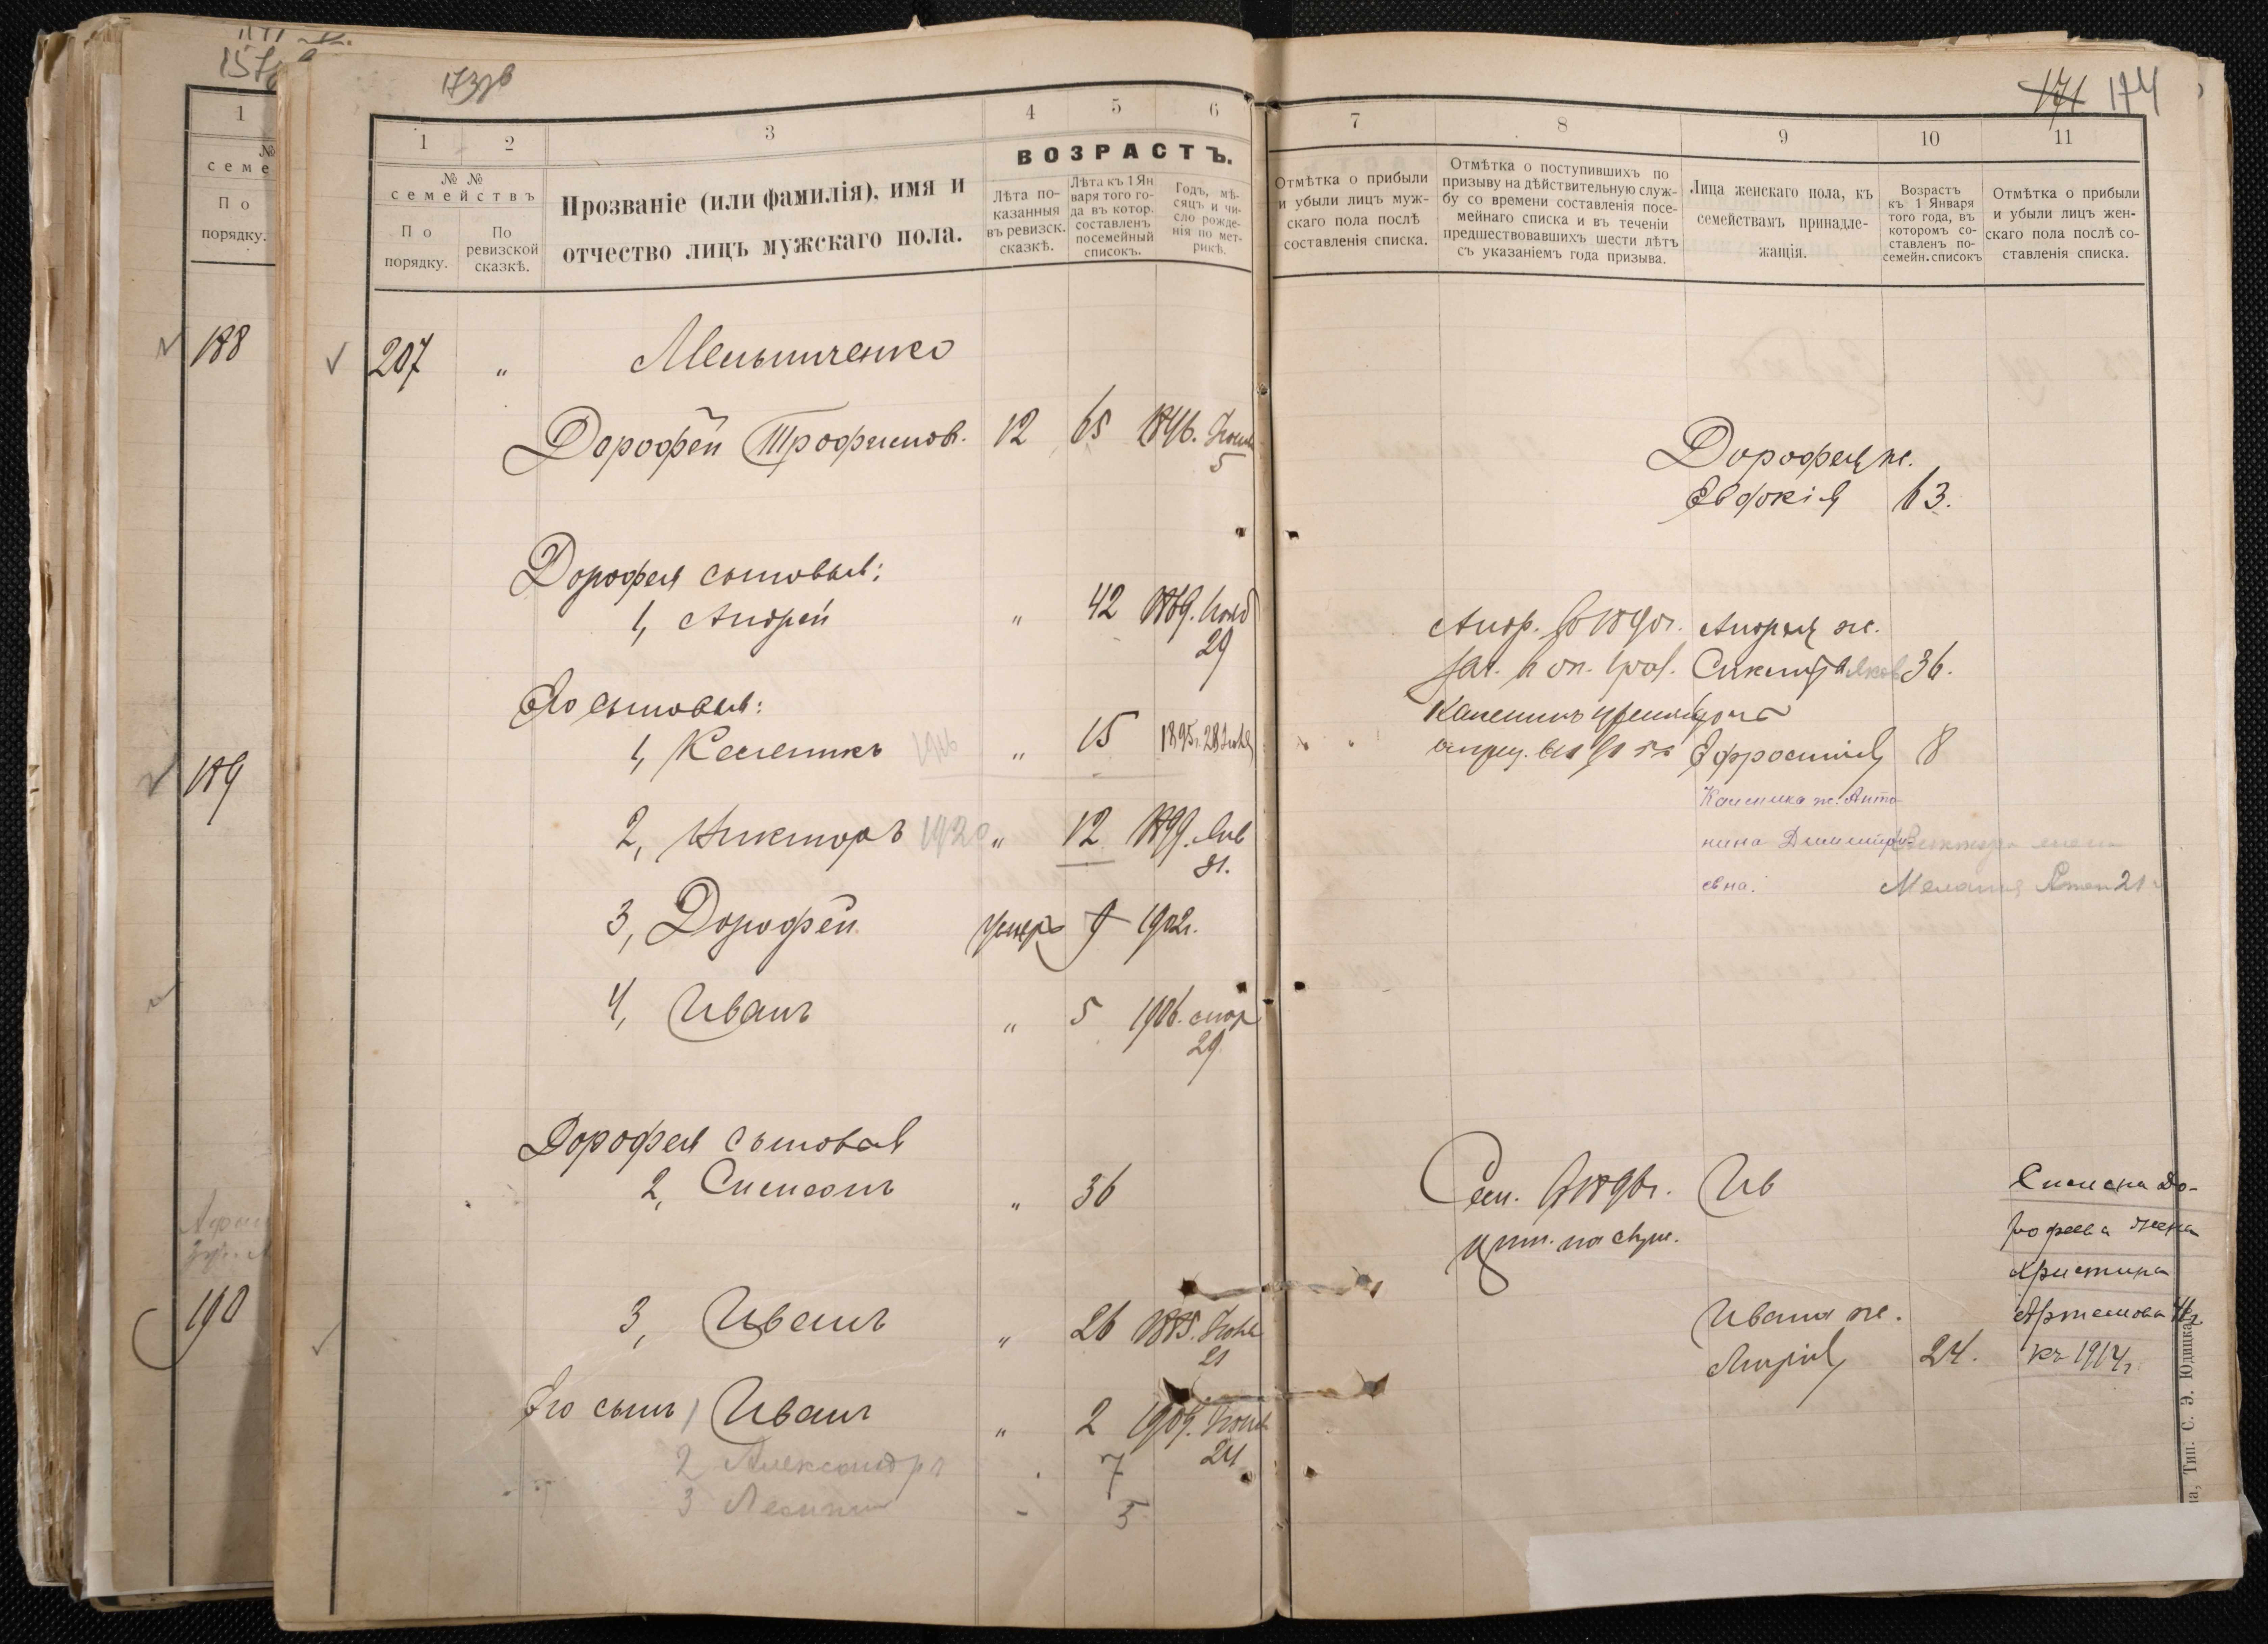 173об
171 174
1 2 3 4 5 6
№ №
семействъ
По
порядку.
По
ревизской
сказкѣ.
Прозваніе (или фамилія), имя и
отчество лицъ мужского пола.
ВОЗРАСТЪ.
Лѣта по-
казанныя
въ ревизск.
сказкѣ.
Лѣта къ 1 Ян
варя того го-
да въ котор.
составленъ
посемейный
списокъ.
Годъ, мѣ-
сяцъ и чи-
сло рожде-
нія по мет-
рикѣ.
7 8 9 10 11
Отмѣтка о прибыли
и убыли лицъ муж-
скаго пола послѣ
составленія списка.
Отмѣтка о поступившихъ по
призыву на дѣйствительную служ-
бу со времени составленія посе-
мейнаго списка и въ теченіи
предшествовавшихъ шести лѣтъ
съ указаніемъ года призыва.
Лица женскаго пола, къ
семействамъ принадле-
жащія.
Возрастъ
къ 1 Января
того года, въ
которомъ со-
ставленъ по-
семейн. списокъ
Отмѣтка о прибыли
и убыли лицъ жен-
скаго пола послѣ со-
ставленія списка.
1
№
семе
По
порядку.
188
189
190
207 " Мельниченко
Дорофѣй Трофимов. 12 65 1846. Іюня
5
Дорофея ж.
Евдокія 63.
Дорофея сыновья:
1, Андрей " 42 1869. Нояб
29
Андр. въ 1890г. Андрея ж.
36.
Его сыновья:
1, Калейникъ " 15 1895г. 28 Іюля
Ефросинія 8
2, Викторъ 1920 " 12 1899. Янв
31.
Каленика ж. Анто-
нина Димитри-
евна.
Виктора жена
Мелания 21
3, Дорофѣй умеръ 9 1902г.
4, Иванъ " 5 1906. мар
29
Дорофея сыновья
2, Симеонъ " 36
Сем. въ 1896г. Ив
Симеона До-
рофеева жена
Христина
Артемова
къ 1914г.
3, Иванъ " 26 1885. Іюля
21
Ивана ж.
Марія 24.
Его сынъ 1 Иванъ " 2 1909. Іюня
24
2 Александръ 7
3 - 5
Тип. С. Э. Юдицкаг